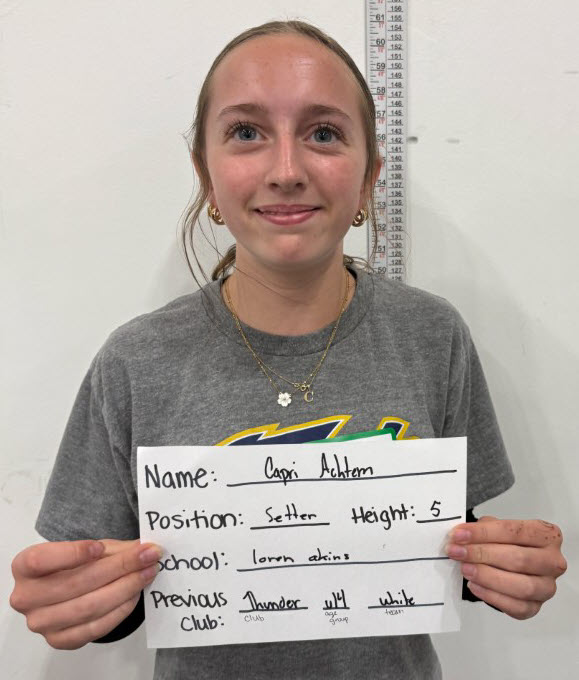 Name: Capri Achtem
Position: Setter Height: 5
School: loren akins
Previous Club: Thunder u14 white
club age group team
C